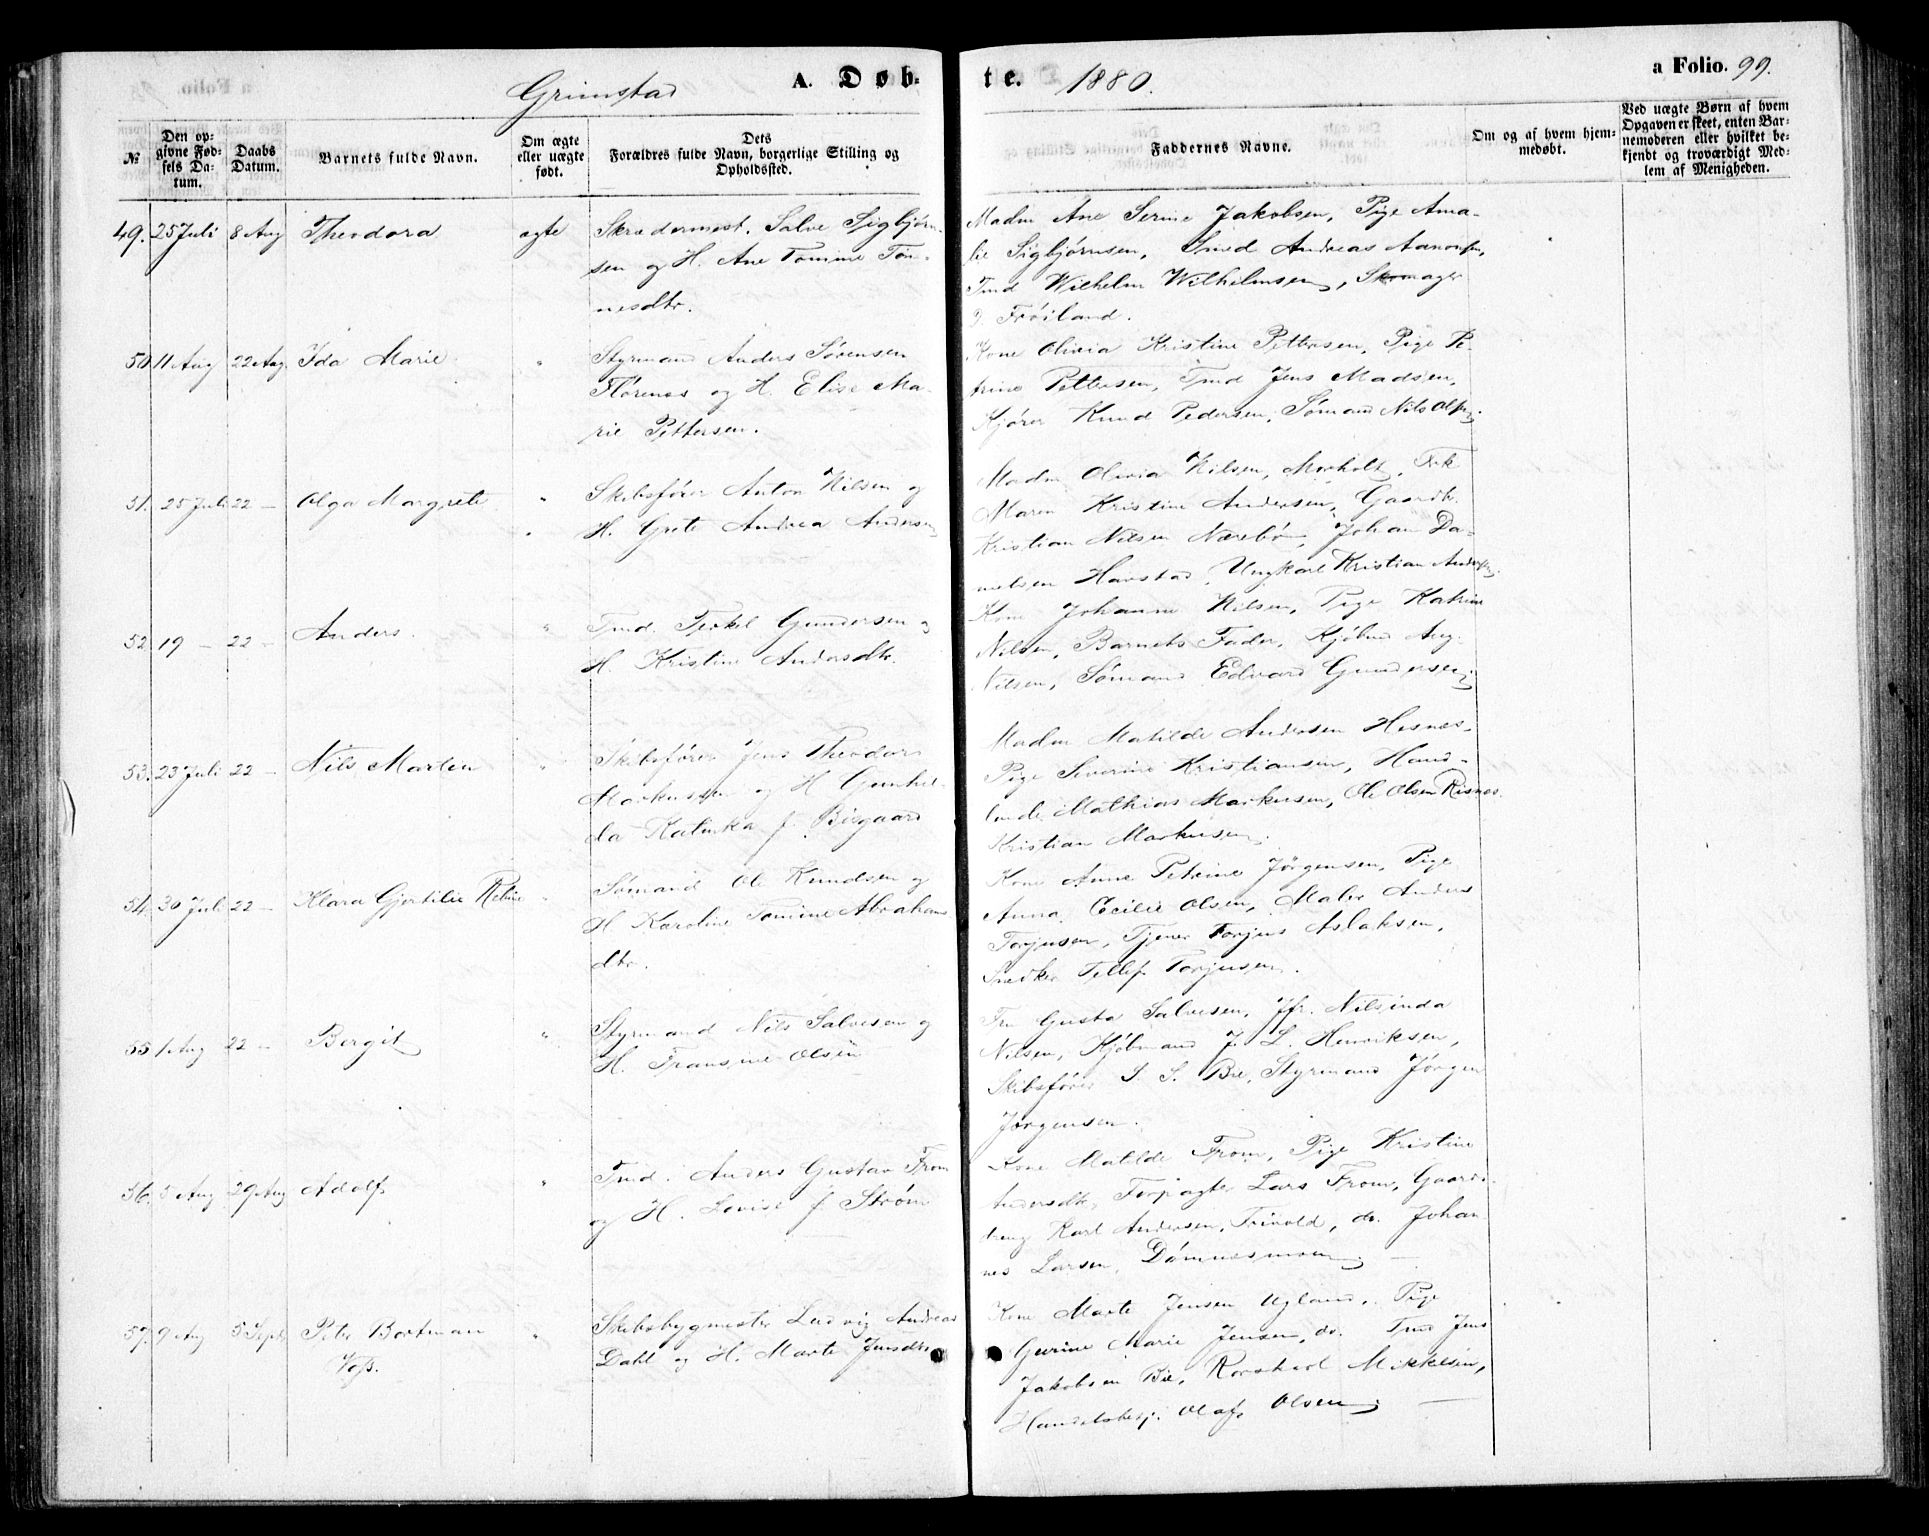 Grimstad A. Døb-
te. 1880. a Folio. 99.
№ Den op-givne Fød-sels Da-tum. Daabs Datum. Barnets fulde Navn. Om ægte eller uægte født. Dets Forældres fulde Navn, borgerlige Stilling og Opholdssted. Faddernes Navne. Om og af hvem hjem-medøbt. Ved uægte Børn af hvem Opgaven er skeet, enten Bar-nemoderen eller hvilket be-kjendt og troværdigt Med-lem af Menigheden.
49. 25 Juli 8 Aug Theodora ægte Skrædermest. Salve Sigbjørn-
sen og H. Ane Tomine Tøn-
nesdtr.
Madm Ane Serine Jakobsen, Pige Ama-
lie Sigbjørnsen, Smed Andreas Aanonsen,
Tmd Wilhelm Wilhelmsen, Skomager
Frøiland.
50 11 Aug 22 Aug. Ida Marie " Styrmand Anders Sørensen
Florenes og H. Elise Ma-
rie Pettersen.
Kone Olivia Kristine Pettersen, Pige Pe-
trine Pettersen, Tmd Jens Madsen,
Kjører Knud Pedersen, Sømand Nils Olsen.
51. 25 Juli 22 — Olga Margrete " Skibsfører Anton Nilsen og
H. Grete Andrea Andersen
Madm Olivia Nilsen, Morholt, Frk
Maren Kristine Andersen, Gaardb.
Kristian Nilsen Nærebø, Johan Da-
nielsen Havstad, Ungkarl Kristian Andersen.
52 19 — 22 — Anders. " Tmd. Terkel Gundersen og
H. Kristine Andersdtr.
Kone Johanne Nilsen, Pige Katrine
Nilsen, Barnets Fader, Kjøbmd Aug.
Nilsen, Sømand Edvard Gundersen.
53. 23 Juli 22 — Nils Martin " Skibsfører Jens Theodor
Markussen og H Gunhil-
da Katinka f. Bisgaard
Madm Matilde Andersen Hesnes,
Pige Severine Kristiansen, Hand-
lende Mathias Markusen, Ole Olsen Risnes
Kristian Markusen.
54. 30 Juli 22 — Klara Gjertilie " Sømand Ole Knudsen og
H. Karoline Tomine Abrahams
dtr.
Kone Anne Petrine Jörgensen, Pige
Anna Cecilie Olsen, Maler Anders
Torjusen, Tjener Torjus Aslaksen,
Snedker Tellef Torjusen.
55 1 Aug 22 — Bergit " Styrmand Nils Salvesen og
H. Fransine Olsen
Fru Gusta Salvesen, Jfr. Nilsinda
Nilsen, Kjøbmand J. L. Henriksen,
Skibsfører S. S. Bie, Styrmand Jörgen
Jørgensen.
56. 5 Aug 29 Aug Adolf " Tmd. Anders Gustav From
og H. Lovise f. Strøm
Kone Matilde From, Pige Kristine
Andersdtr, Forpagter Lars From, Gaard-
breng Karl Andersen, Trivold, do. Johan
nes Larsen, Dömmesmoen. —
57. 9 Aug 5 Sept. Peter Bortman " Skibsbygmester Ludvig Andreas
Voss. Dahl og H. Marte Jensdtr.
Kone Marte Jensen Ugland, Pige
Gurine Marie Jensen, do. Tmd Jens
Jakobsen Bie, Mikkelsen,
Handelsbetj. Olaf Olsen. —